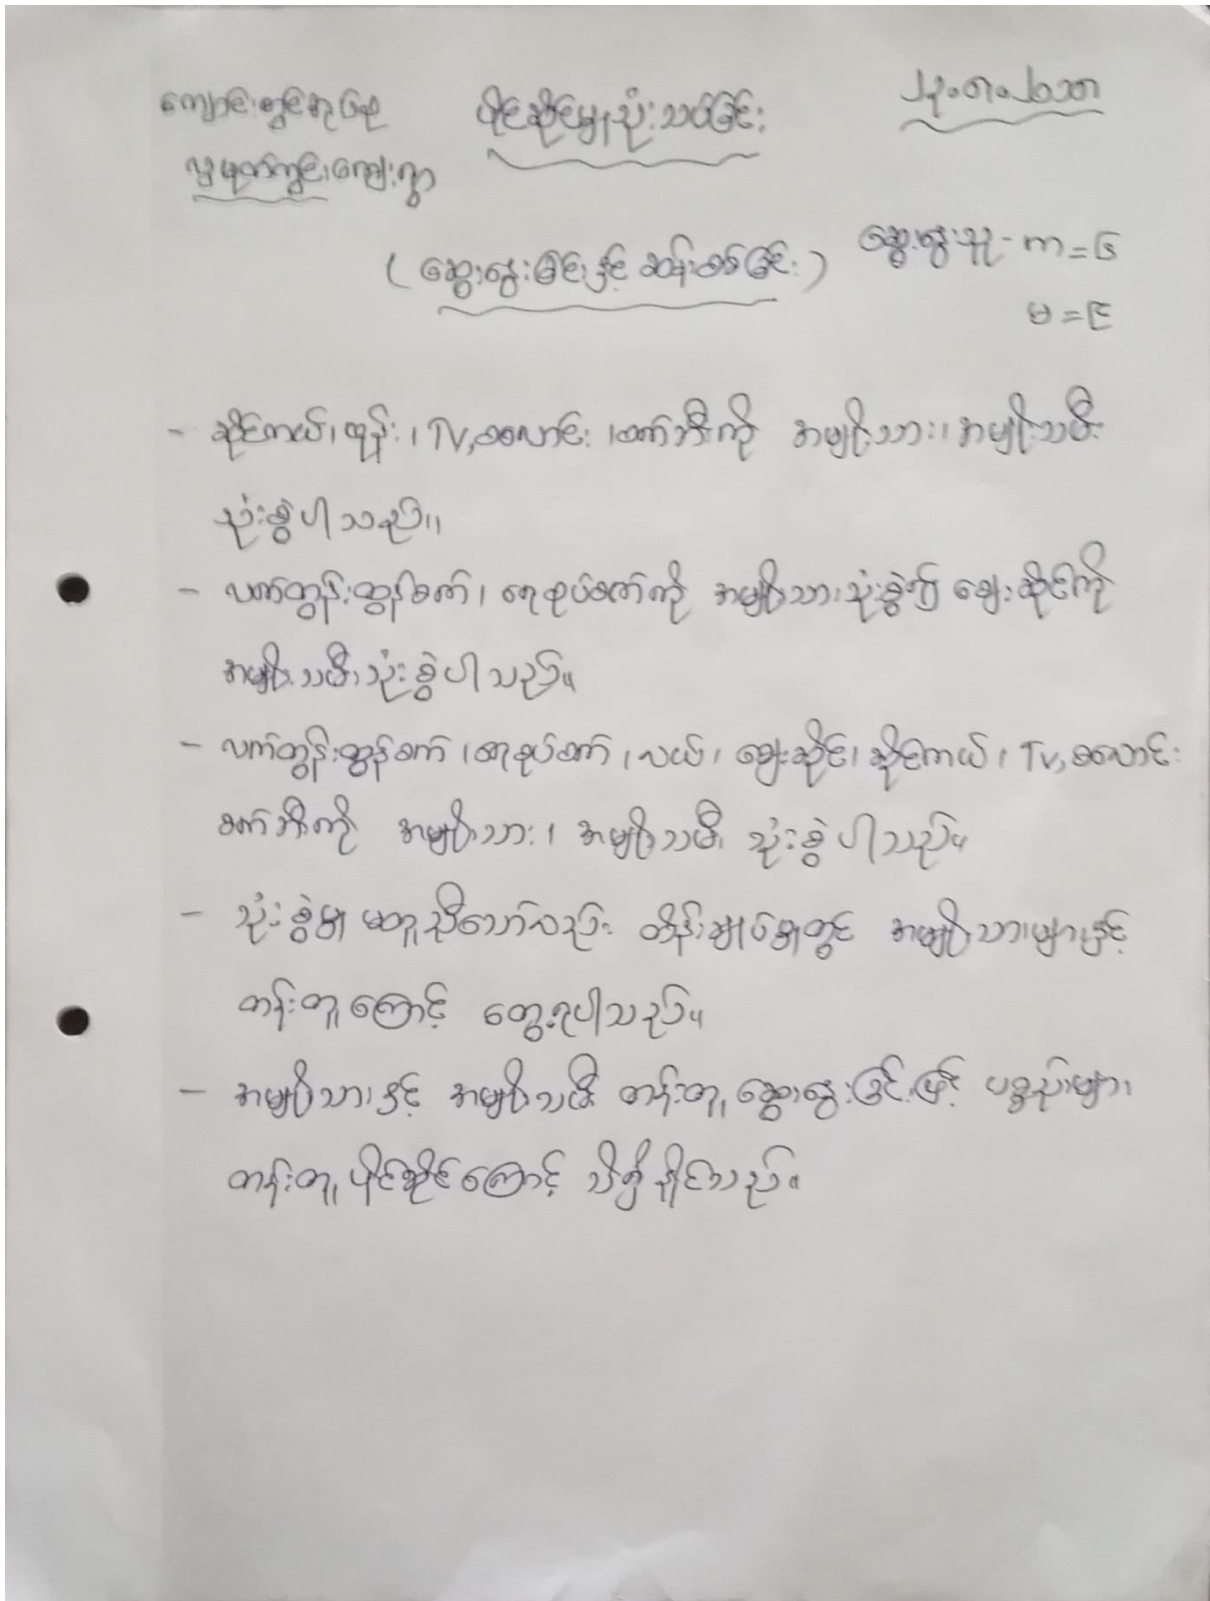 ကျောင်းတွင်းအုပ်စု ပိုင်ဆိုင်မှုသုံးသပ်ခြင်း
ကျေးရွာ
(ဆွေးနွေးခြင်းနှင့် ဆန်းစစ်ခြင်း) ဆွေးနွေးသူ - ကာ = ၆
မ = ၉
- ဆိုင်ကယ်၊ ဖုန်း၊ TV, စလောင်း၊ စက်ဘီးကို အမျိုးသား၊ အမျိုးသမီး
သုံးစွဲပါသည်။
- လက်တွန်းထွန်စက်၊ ရေစုပ်စက်ကို အမျိုးသားသုံးစွဲ၍ ဈေးဆိုင်ကို
အမျိုးသမီးသုံးစွဲပါသည်။
- လက်တွန်းထွန်စက်၊ ရေစုပ်စက်၊ လယ်၊ ဈေးဆိုင်၊ ဆိုင်ကယ်၊ TV, စလောင်း
စက်ဘီးကို အမျိုးသား၊ အမျိုးသမီး သုံးစွဲပါသည်။
- သုံးစွဲမှု မတူညီသော်လည်း ထိန်းချုပ်မှုတွင် အမျိုးသားများနှင့်
တန်းတူကြောင့် တွေ့ရပါသည်။
- အမျိုးသားနှင့် အမျိုးသမီး တန်းတူ ဆွေးနွေးခြင်းဖြင့် ပစ္စည်းများ
တန်းတူ ပိုင်ဆိုင်ကြောင့် သိရှိနိုင်သည်။